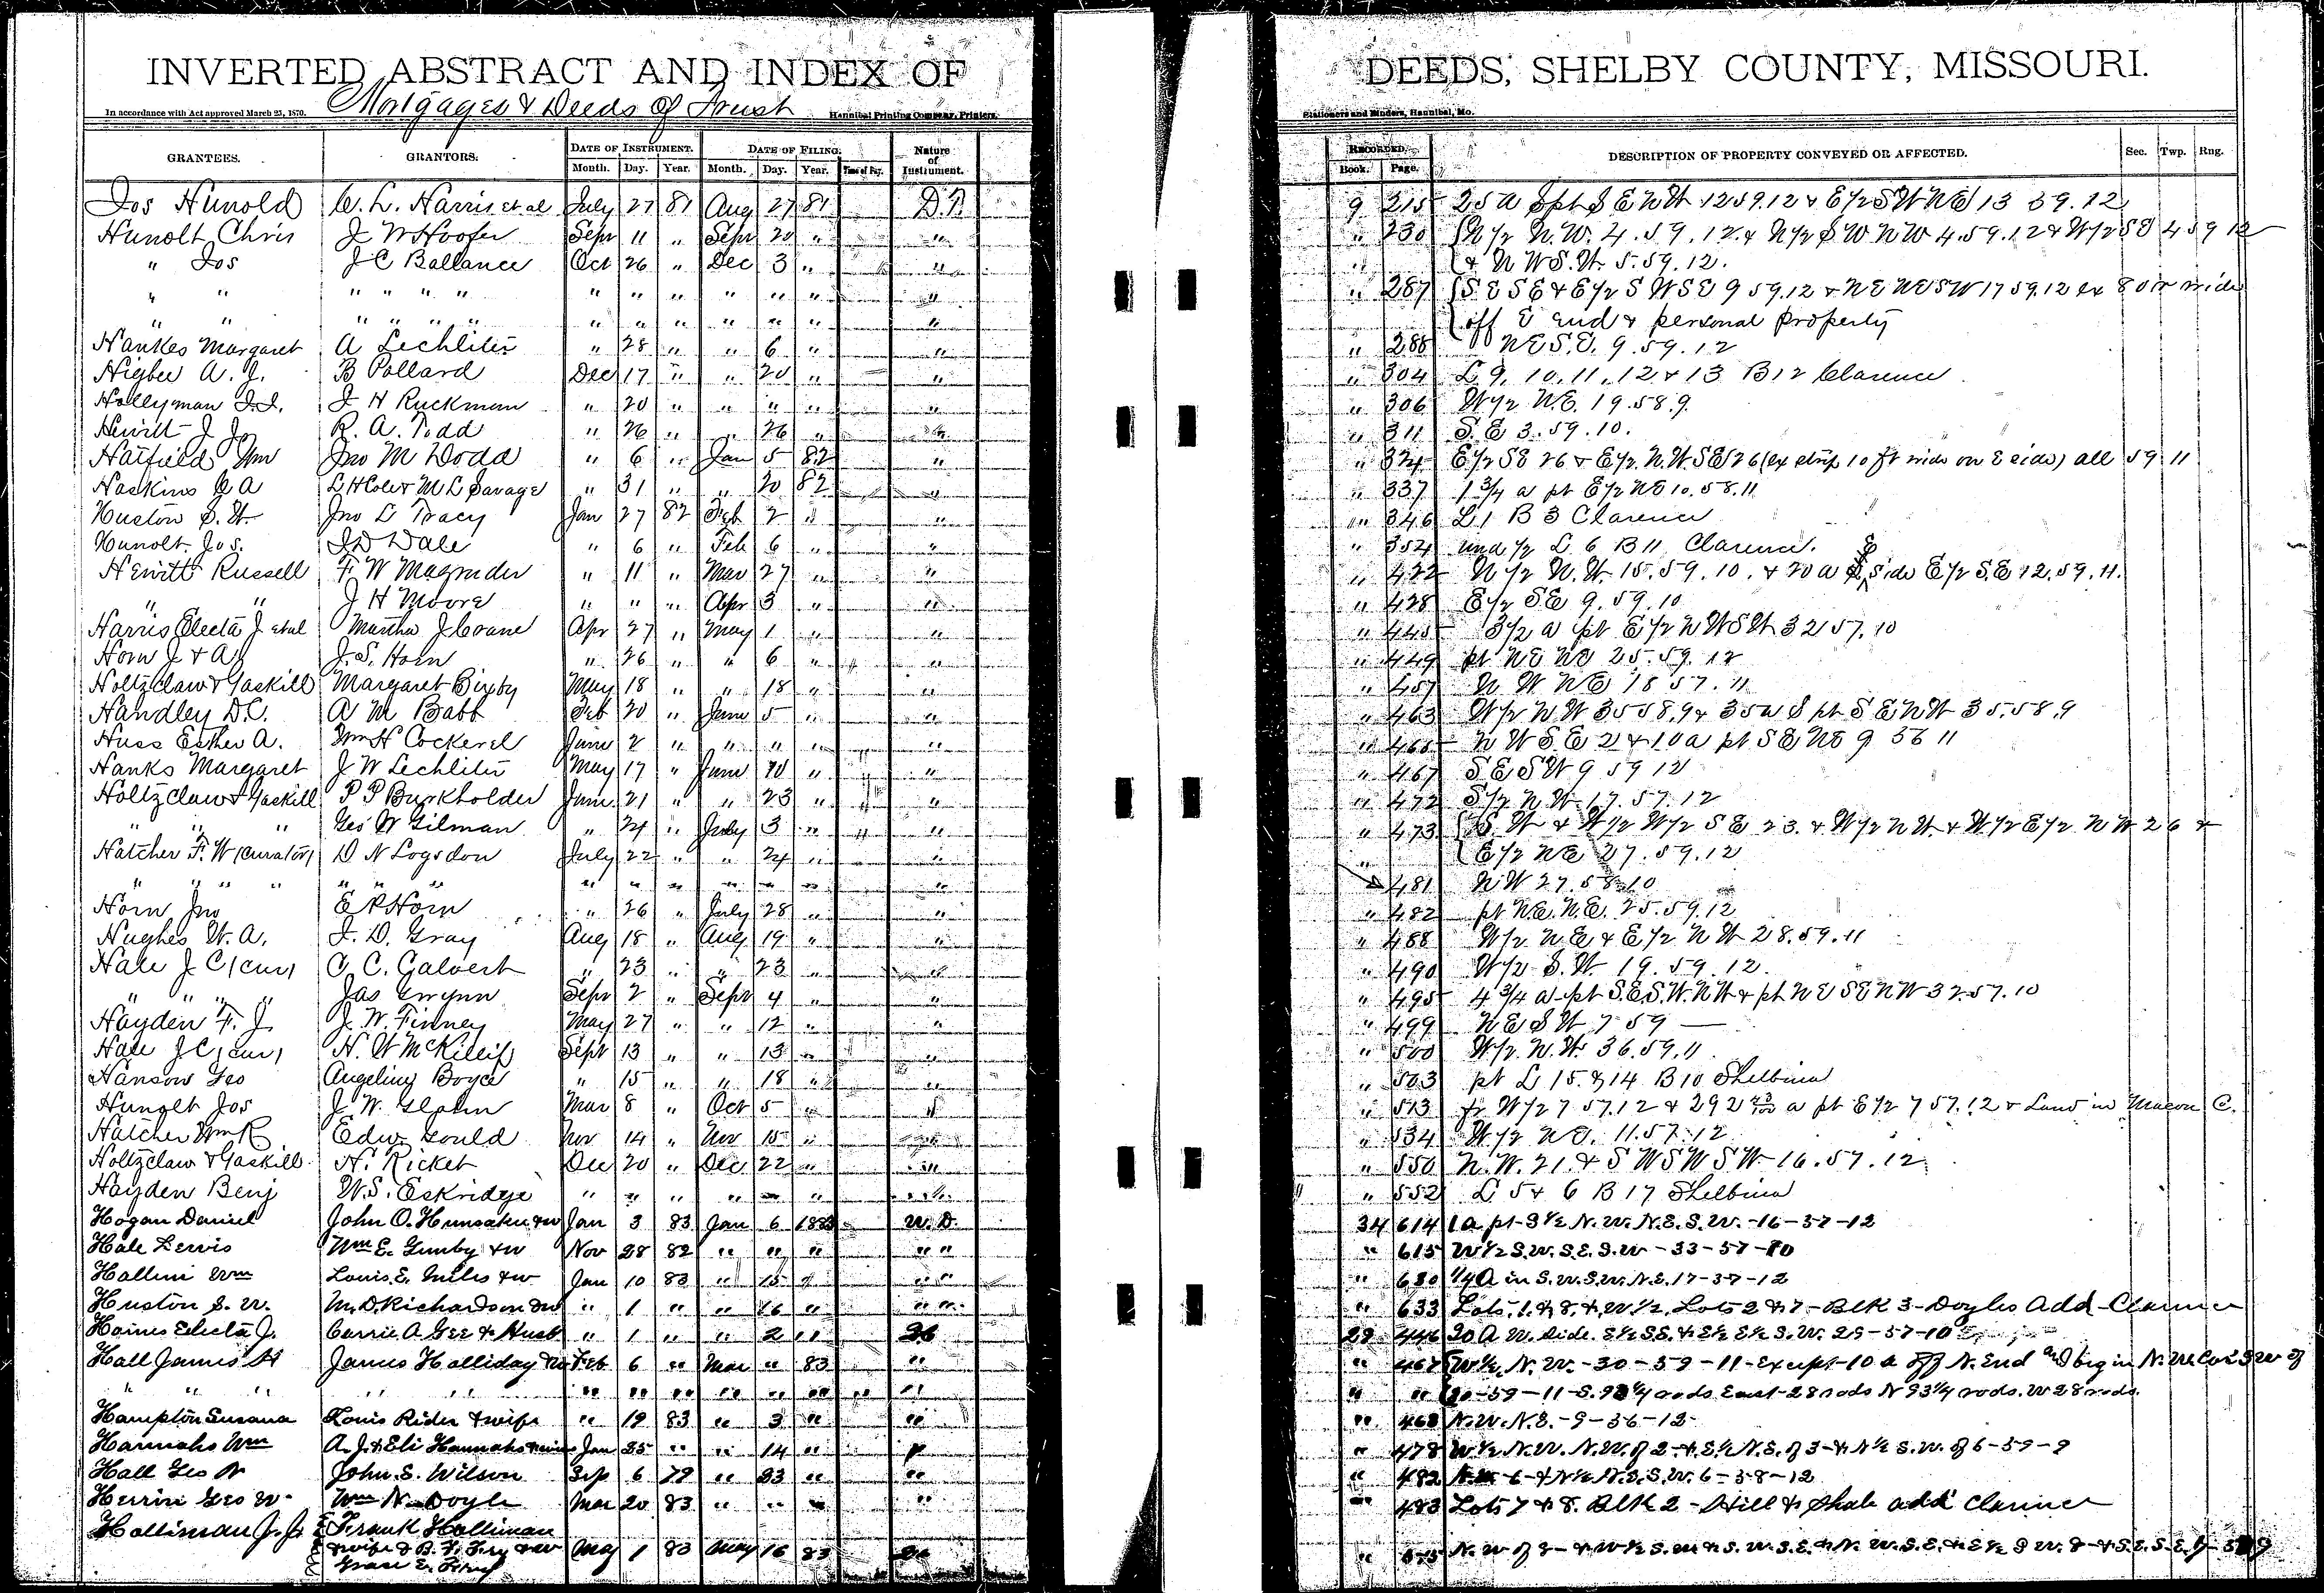 INVERTED ABSTRACT AND INDEX OF DEEDS, SHELBY COUNTY, MISSOURI.
In accordance with Act approved March 25, 1870. Mortgages & Deeds of Trust Hannibal Printing Company, Printers, Stationers and Binders, Hannibal, Mo.
GRANTEES. GRANTORS. DATE OF INSTRUMENT. DATE OF FILING. Nature of Instrument. RECORDED. DESCRIPTION OF PROPERTY CONVEYED OR AFFECTED. Sec. Twp. Rng.
Month. Day. Year. Month. Day. Year. Time of Day. Book. Page.
Jos Hunold C. L. Harris et al July 27 81 Aug 27 81 D.T. 9 215 25 a S pt S E N W 12 59.12 & E 1/2 S W N E 13 59.12
Hunolt Chris J W Hoofer Sept 11 " Sept 20 " " " 230 N 1/2 N.W. 4.59.12 & N 1/2 S W N W 4.59.12 & W 1/2 S E 4 59 12
" Jos J C Ballance Oct 26 " Dec 3 " " " & N W S.W. 5.59.12.
" " " " " " " " " " " " " " 287 S E S E & E 1/2 S W S E 9 59.12 & N E N E S W 17 59.12 ex 80 r wide
" " " " " " " " " " " " " off E end & personal property
Hankes Margaret A Lechliter " 28 " " 6 " " " 288 N E S.E. 9.59.12
Higbee A. J. B Pollard Dec 17 " " 20 " " " 304 L 9, 10, 11, 12 & 13 B 12 Clarence
Hollyman J.J. J H Ruckman " 20 " " " " " " 306 W 1/2 N.E. 19.58.9.
Hewitt J J R. A. Todd " 26 " " 26 " " " 311 S.E 3.59.10.
Hatfield Wm Jno M Dodd " 6 " Jan 5 82 " " 324 E 1/2 S E 26 & E 1/2 N.W. S E 26 (ex strip 10 ft wide on E side) all 59 11
Haskins C A L H Cole & M L Savage " 31 " " 20 82 " " 337 1 3/4 a pt E 1/2 N E 10.58.11
Huston S. W. Jno L Tracy Jan 27 82 Feb 2 " " " 346 L 1 B 3 Clarence
Hunolt Jos. J D Dale " 6 " Feb 6 " " " 354 und 1/2 L 6 B 11 Clarence.
Hewitt Russell F. W Magruder " 11 " Mar 27 " " " 422 N 1/2 N.W. 15.59.10. & 20 a E side E 1/2 S.E 12.59.11.
" " J H Moore " " " Apr 3 " " " 428 E 1/2 S E 9.59.10
Harris Electa J et al Martha J Coane Apr 27 " May 1 " " " 445 3 1/2 a pt E 1/2 N W S W 32 57.10
Horn J & A J. S. Horn " 26 " " 6 " " " 449 pt N E N E 25.59.12
Holtzclaw & Gaskill Margaret Bixby May 18 " " 18 " " " 457 N W N E 18 57.11
Handley D.C. A M Babb Feb 20 " June 5 " " " 463 W 1/2 N W 35 58.9 & 35 a S pt S E N W 35.58.9
Huss Esther A. Wm H Cockerel June 2 " " " " " " 465 N W S E 2 & 10 a pt S E N E 9 56 11
Hanks Margaret J W Lechliter May 17 " June 10 " " " 467 S E S W 9 59 12
Holtzclaw & Gaskill P P Burkholder June 21 " " 23 " " " 472 S 1/2 N W 17.57.12
" " " Geo W Gilman " 24 " July 3 " " " 473 S W & W 1/2 W 1/2 S E 23. & W 1/2 N W & W 1/2 E 1/2 N W 26 &
Hatcher F. W (curator) D N Logsdon July 22 " " 24 " " " E 1/2 N E 27.59.12
" " " " " " " " " " " " " " 481 N W 27.58.10
Horn Jno E P Horn " 26 " July 28 " " " 482 pt N.E. N.E. 25.59.12
Hughes W. A. J. D. Gray Aug 18 " Aug 19 " " " 488 W 1/2 N E & E 1/2 N W 28.59.11
Hale J C (cur) C. C. Calvert " 23 " " 23 " " " 490 W 1/2 S.W. 19.59.12.
" " " " Jas Gwynn Sept 2 " Sept 4 " " " 495 4 3/4 a pt S.E.S.W. N W & pt N E S E N W 32.57.10
Hayden F. J. J. W. Finney May 27 " " 12 " " " 499 N E S W 7 59 —
Hale J C (cur) H. W McKillip Sept 13 " " 13 " " " 500 W 1/2 N.W. 36.59.11
Hanson Geo Angeliny Boyce " 15 " " 18 " " " 503 pt L 15 & 14 B 10 Shelbina
Hunolt Jos J. W. Glahn Mar 8 " Oct 5 " " " 513 fr W 1/2 7 57.12 & 292 43/100 a pt E 1/2 7 57.12 & Land in Macon C.
Hatcher Wm R Edw. Gould Nov 14 " Nov 15 " " " 534 W 1/2 N E. 11.57.12
Holtzclaw & Gaskill H. Ricket Dec 20 " Dec 22 " " " 550 N.W. 21. & S W S W S W 16.57.12
Hayden Benj W. S. Eskridge " " " " " " " " 552 L 5 & 6 B 17 Shelbina
Hogan Daniel John O. Hunsaker & w Jan 3 83 Jan 6 1883 W.D. 34 614 1 a pt S 1/2 N.W. N.E. S.W. -16-57-12
Hale Lewis Wm E. Gunby & w Nov 28 82 " " " " " " 615 W 1/2 S.W. S.E. S.W -33-57-10
Wm Louis E. Miles & w Jan 10 83 " 15 " " " " 630 1/4 A in S.W. S.W. N.E. 17-57-12
Huston S. W. M. D. Richardson & w " 1 " " 16 " " " " 633 Lots 1 & 8 & W 1/2 Lots 2 & 7 - Blk 3 - Doyles Add - Clarence
Haines Electa J. Carrie A Gee & Husb " 1 " " 2 " 29 446 20 A W. Side. E 1/2 S.E. & E 1/2 E 1/2 S.W. 29-57-10
Hall James H James Halliday & w Feb 6 " Mar " 83 " " 467 W 1/2 N.W. -30-59-11- Except 10 a off N. End and begin N.W. cor S W of
" " " " " " " " " " " " " " " " 30-59-11-S. 93 1/4 rods East 28 rods N 93 1/4 rods. W 28 rods.
Hampton Susana Louis Rider & wife " 19 83 " 3 " " " 468 N.W. N.E. -9-56-12-
Hannahs Wm A. J. & Eli Hannahs & wives Jan 25 " " 14 " " " 478 W 1/2 N.W. N.W. of 2 & E 1/2 N.E. of 3 & N 1/2 S.W. of 6-59-9
Hall Geo W John. S. Wilson Sep 6 79 " 23 " " " 482 6 & N 1/2 N.E. S.W. 6-58-12
Herrin Geo W. Wm N. Doyle Mar 20 83 " " " " " 483 Lots 7 & 8. Blk 2 - Hill & Shale add Clarence
Holliman J. J. Frank Holliman
& wife & B. F. & w May 1 83 May 16 83 "
Grace E.